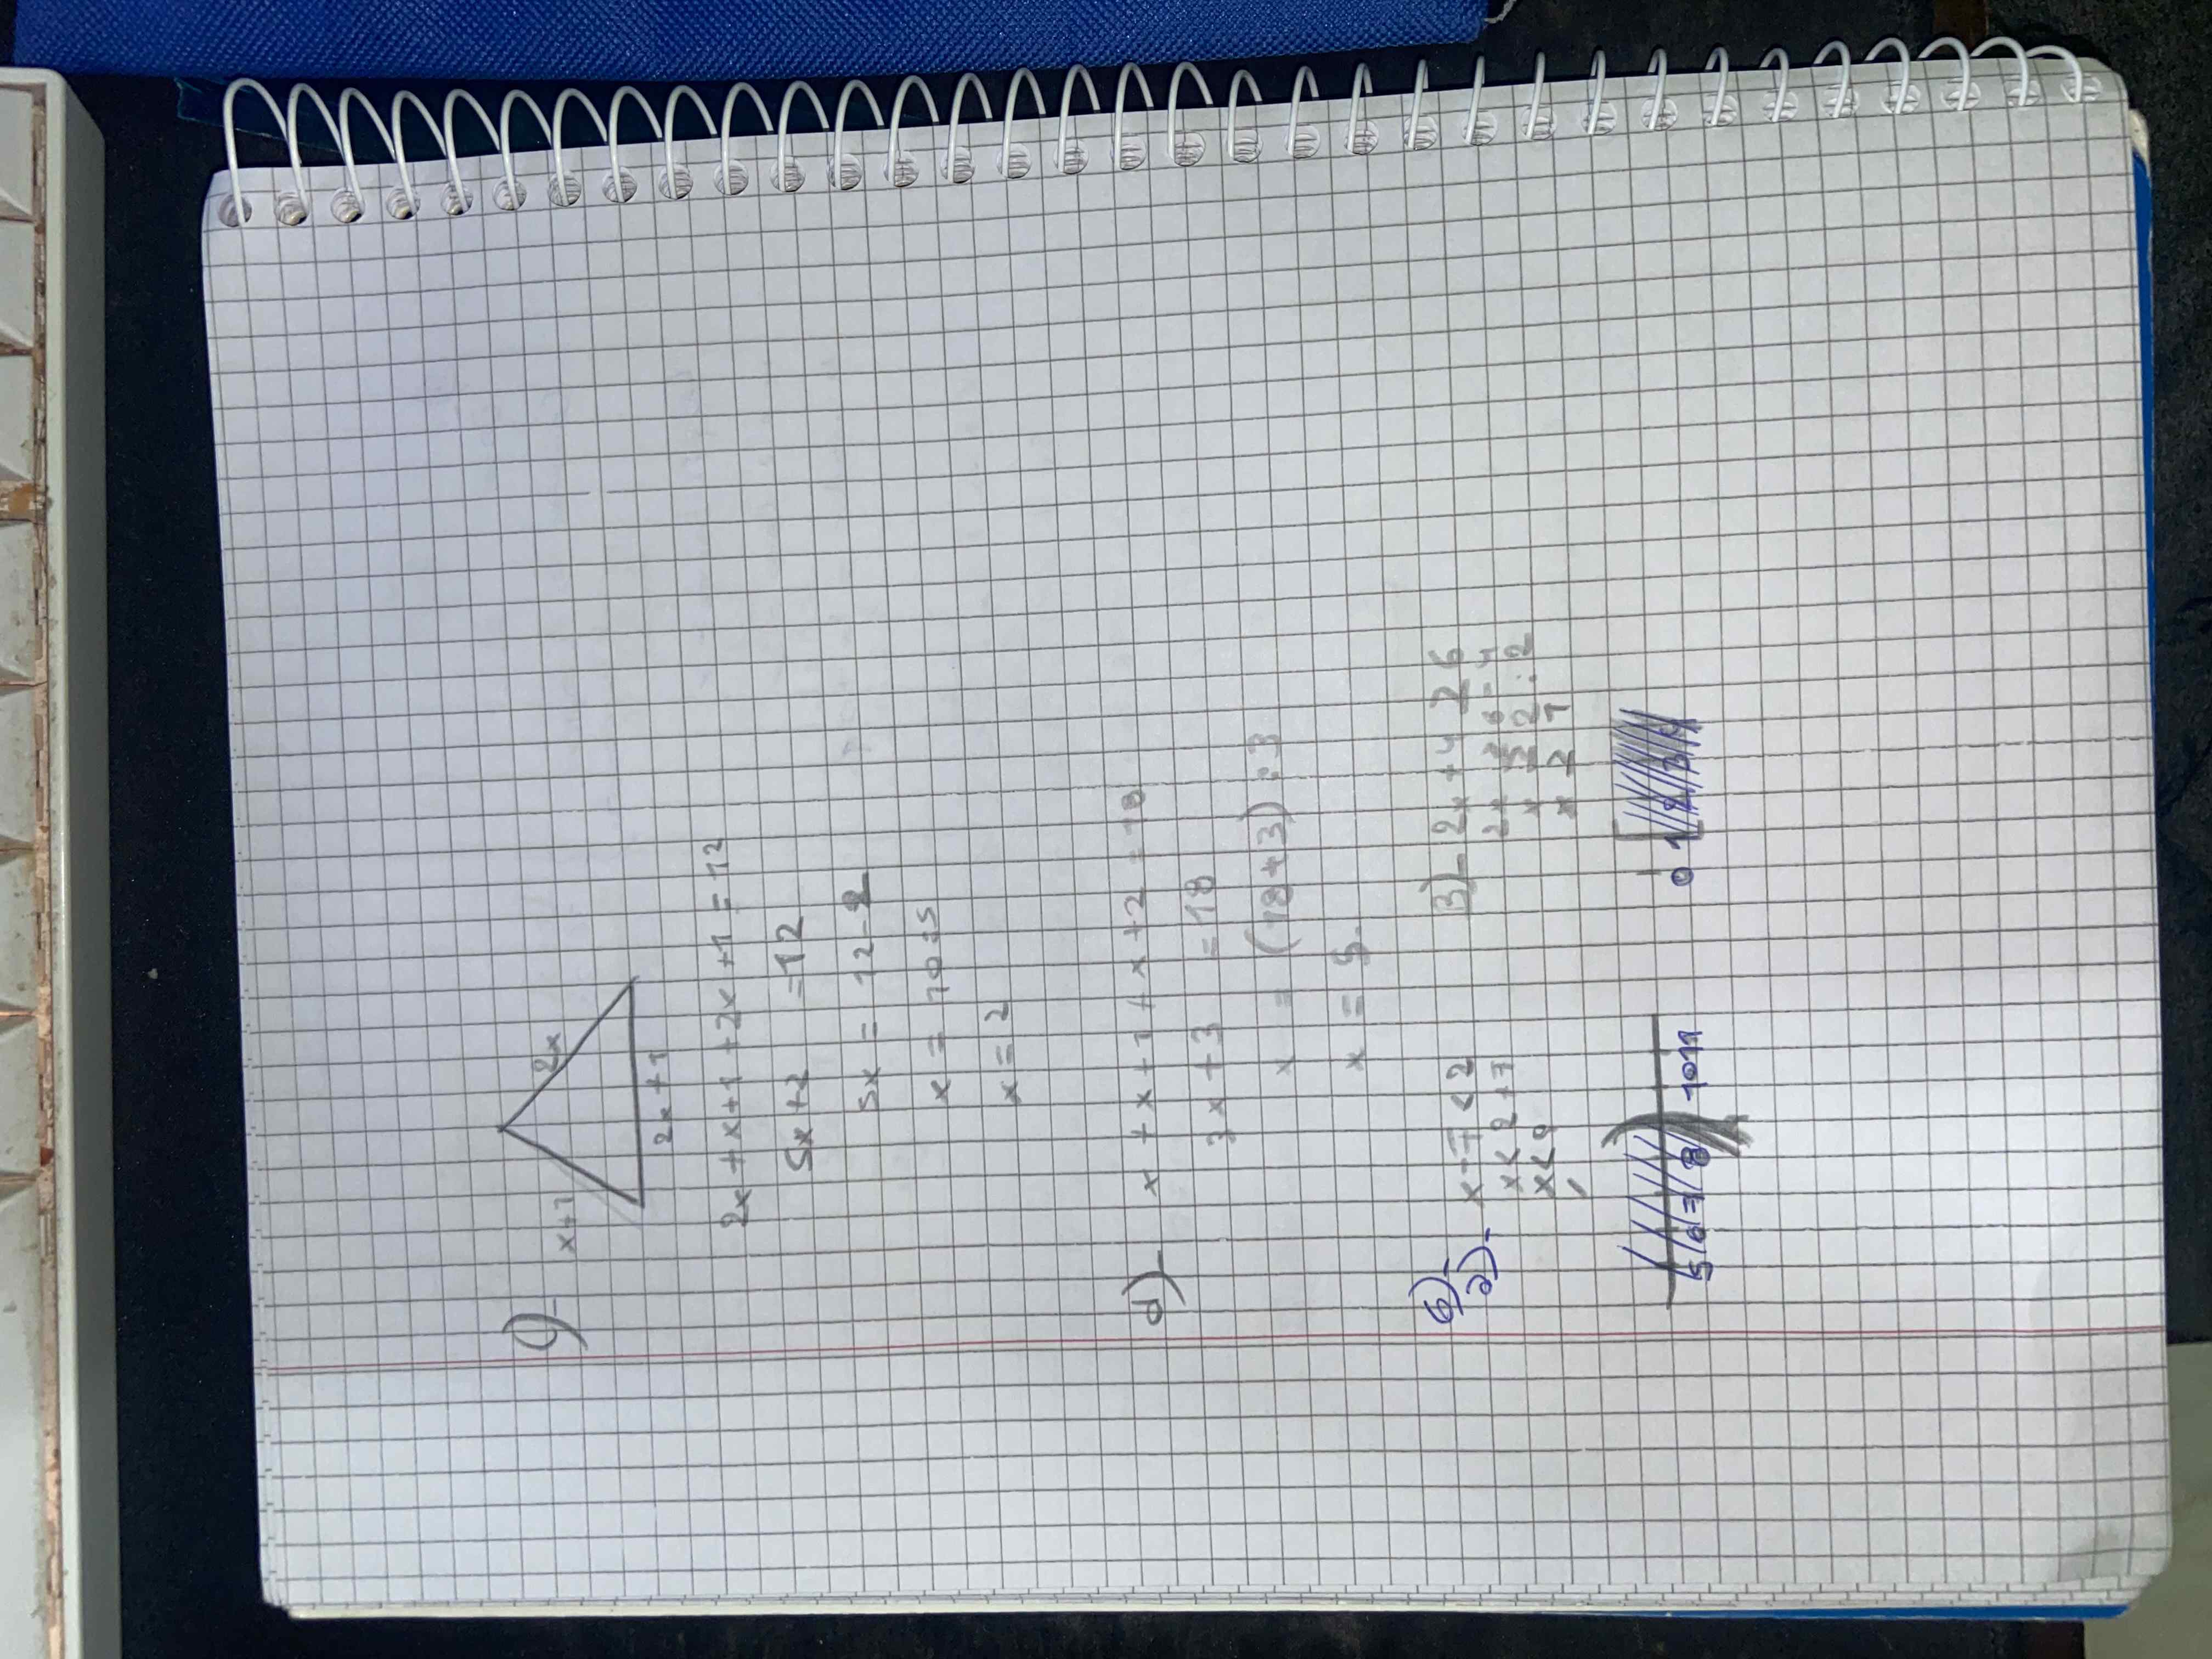 c)
x+1
2x
2x+1
2x + x+1 +2x +1 = 12
5x +2 =12
5x = 12-2
x = 10:5
x = 2
d) x + x+1 + x +2 = 18
3x +3 = 18
x = (18+3):3
x = 5
6)
a) x-7<2
x<2+7
x<9
5 6 7 8 10 11
B) 2x+4 ≥ 6
2x ≥ 6-4
x ≥ 2:2
x ≥ 1
0 1 2 3 4